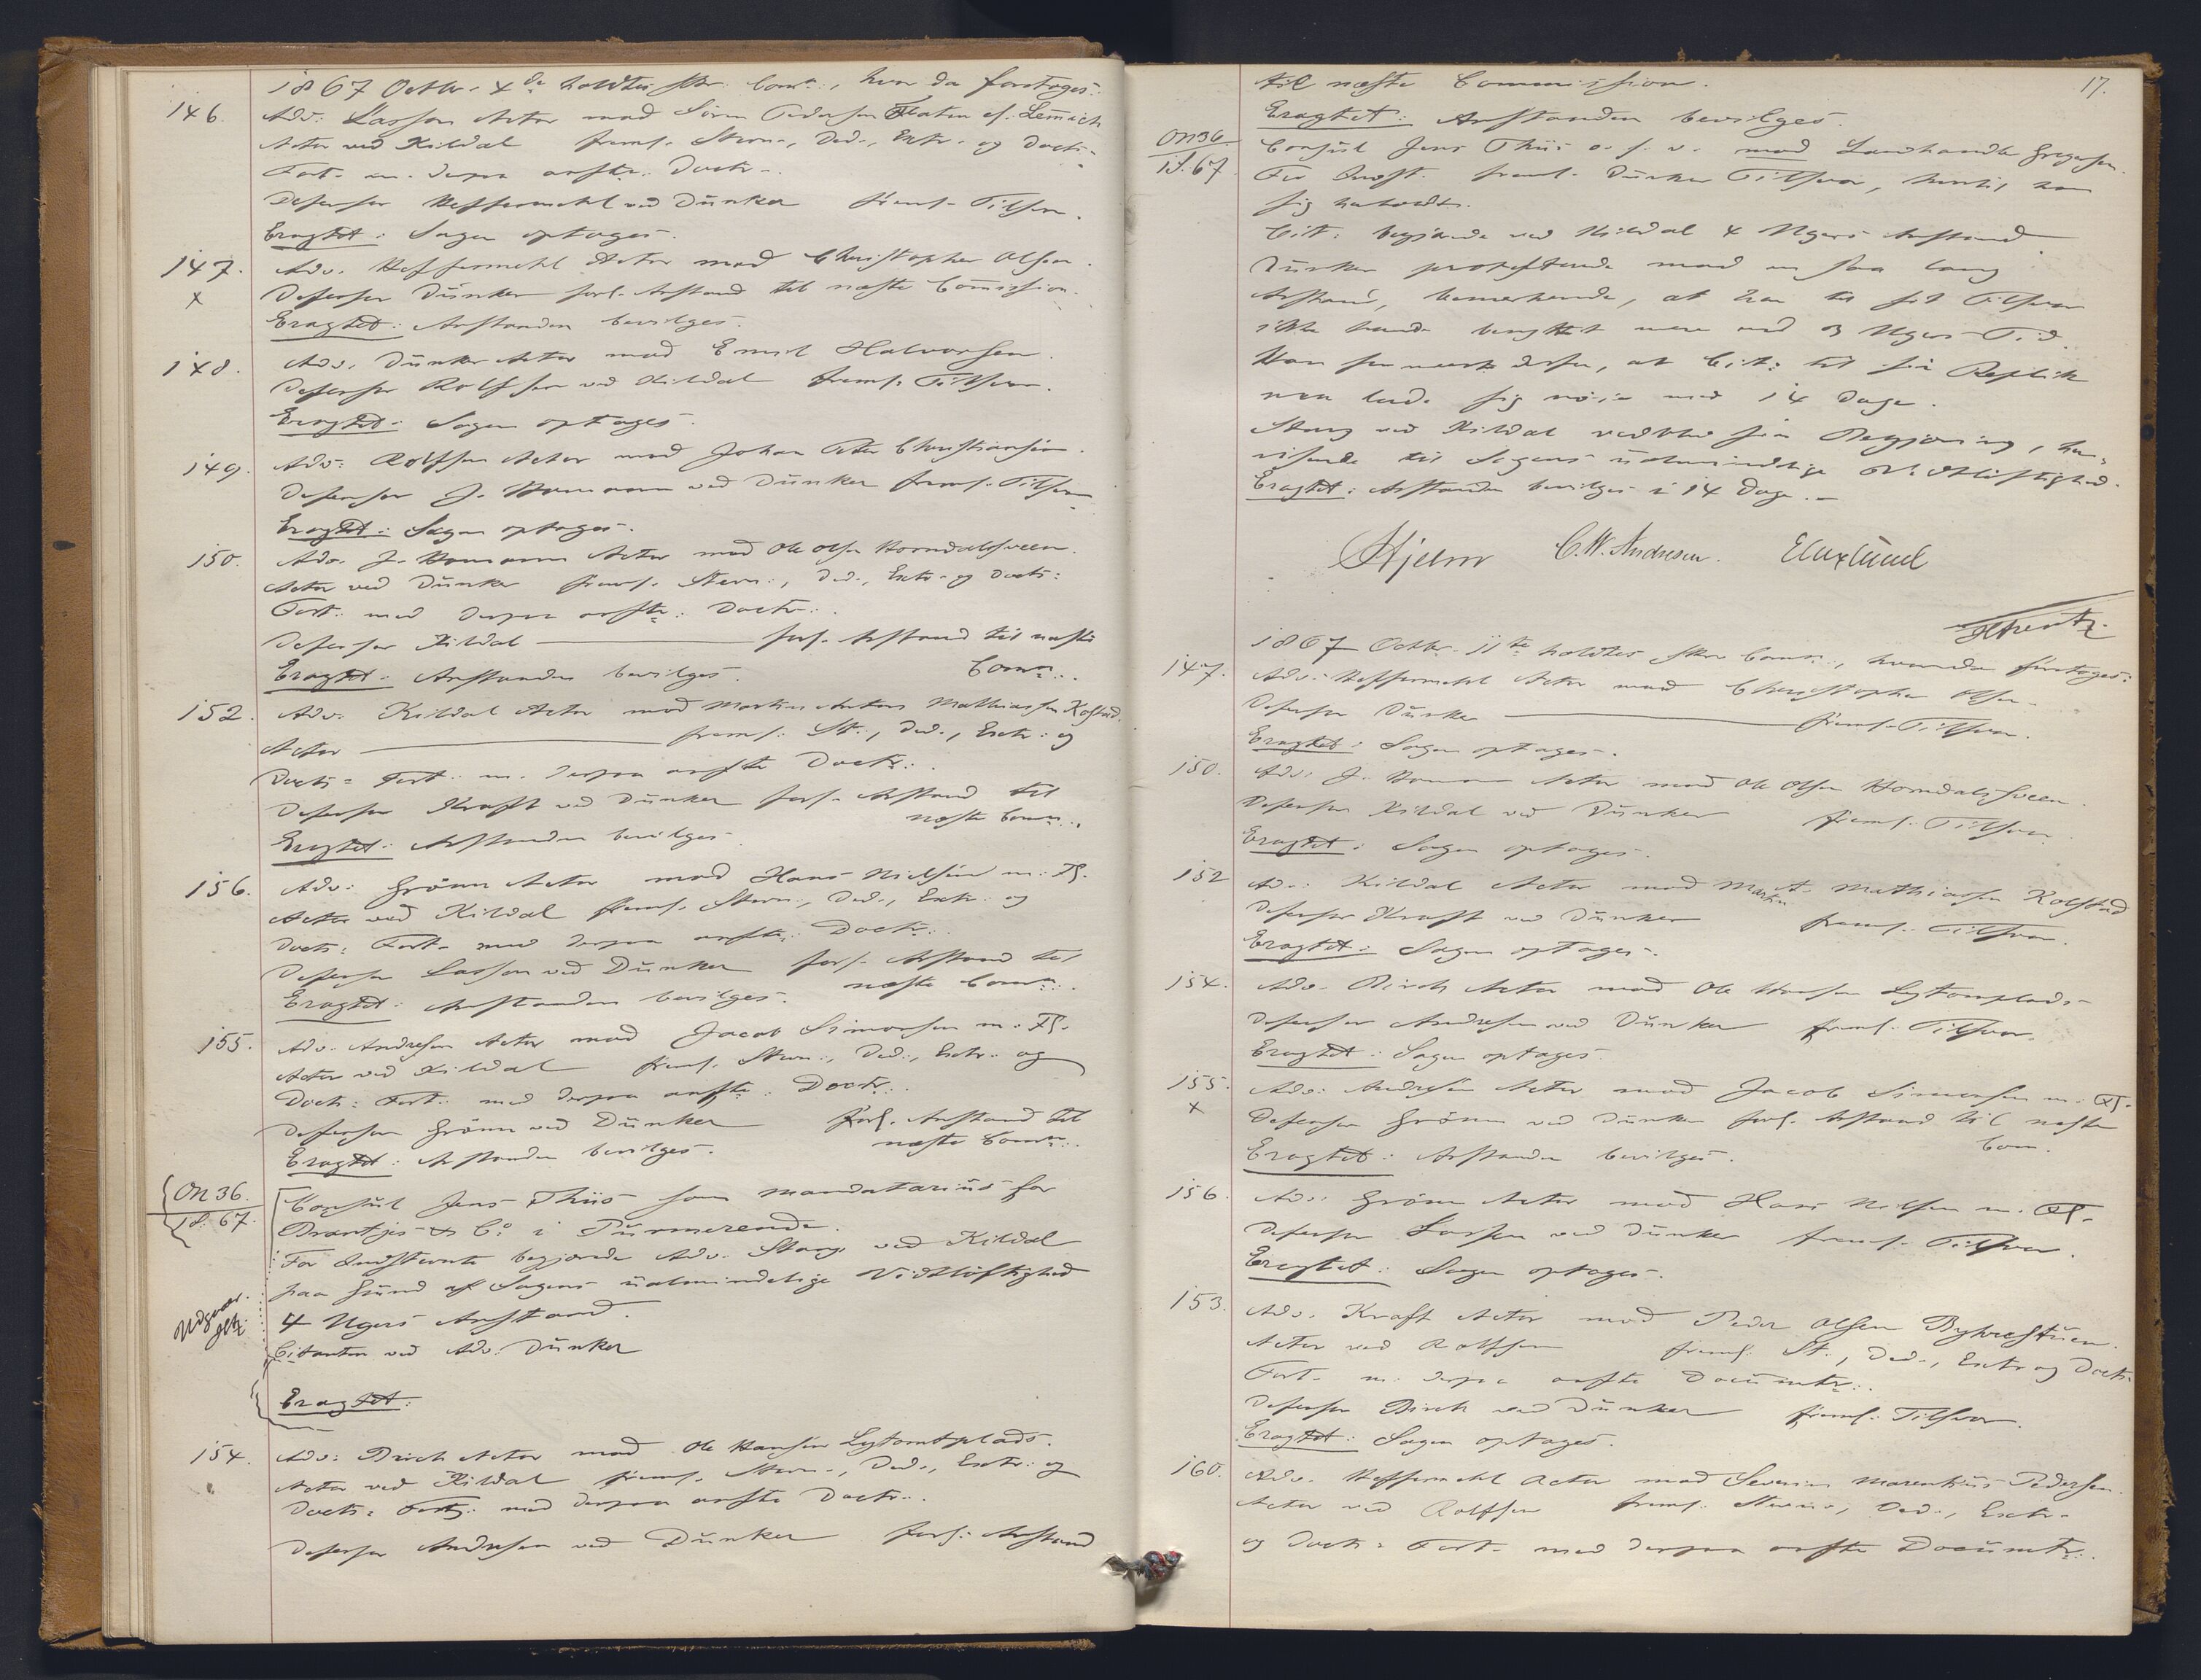 1867 Octbr. 4de holdtes Skr. Comn:, hvor da foretoges:
146. Adv: Lasson Actor mod Sören Pedersen Platen ef. Lemmich
Actor ved Kildal freml. Stevn:, Ded:, Extr. og Docts=
Fort. m. derpaa anfte: Doctr.
Defensor Heffermehl ved Dunker freml. Tilsvar.
Eragtet: Sagen optages.
147. Adv. Heffermehl Actor mod Christopher Olsen.
x Defensor Dunker forl. Anstand til næste Commission.
Eragtet: Anstanden bevilges.
148. Adv. Dunker Actor mod Emil Halvorsen.
Defensor Rolfsen ved Kildal freml. Tilsvar.
Eragtet: Sagen optages.
149. Adv: Rolfsen Actor mod Johan Peter Christiansen.
Defensor J. Homann ved Dunker freml. Tilsvar
Eragtet: Sagen optages.
150. Adv. J. Homann Actor mod Ole Olsen Horndalsveen.
Actor ved Dunker freml. Stevn:, Ded., Extr. og Docts:
Fort: med derpaa anfte: Doctr:.
Defensor Kildal forl. Anstand til næste
Eragtet: Anstanden bevilges. Comn:.
152. Adv. Kildal Actor mod Martin Anton Mathiassen Kolstad.
Actor freml: St:, Ded., Extr: og
Docts= Fort: m. derpaa anfte Doctr:.
Defensor Kraft ved Dunker forl. Anstand til
næste Comn:.
Eragtet: Anstanden bevilges.
156. Adv: Grönn Actor mod Hans Nielsen m. Fl.
Actor ved Kildal freml. Stevn:, Ded., Extr: og
Docts: Fort. med derpaa anfte: Doctr:.
Defensor Lasson ved Dunker forl. Anstand til
Eragtet: Anstanden bevilges. næste Comn:.
155. Adv. Andresen Actor mod Jacob Simonsen m. Fl.
Actor ved Kildal freml. Stevn:, Ded:, Extr: og
Docts: Fort: med derpaa anfte: Doctr:.
Defensor Grönn ved Dunker forl. Anstand til
Eragtet: Anstanden bevilges. næste Comn:.
ON 36. Consul Jens Thiis som Mandatarius for
18:67. Brantjes & Co: i Purmerende.
For Indstevnte begjærde Adv. Stang ved Kildal
paa Grund af Sagens ualmindelige Vidtlöftighed
4 Ugers Anstand.
Udgaaer.
Citanten ved Adv. Dunker
Eragtet:
154. Adv: Birch Actor mod Ole Hansen Lytomtplads.
Actor ved Kildal freml. Stevn:, Ded., Extr: og
Docts= Fort: med derpaa anfte Doctr:.
Defensor Andresen ved Dunker forl: Anstand
17.
til næste Commission.
Eragtet: Anstanden bevilges.
ON 36. Consul Jens Thiis o. s. v. mod Landhandler Gregersen.
18.67. For Indst. freml. Dunker Tilsvar, hvortil han
sig henholdt.
Cit: begjærede ved Kildal 4 Ugers Anstand
Dunker protesterede mod en saa lang
Anstand, bemærkende, at han til sit Tilsvar
ikke havde benyttet mere end 3 Ugers Tid.
Han formente derfor, at Cit: til sin Replik
maa lade sig nöie med 14 Dage.
Stang ved Kildal vedblev sin Begjæring, hen=
visende til Sagens ualmindelige Vidtlöftighed.
Eragtet: Anstanden bevilges i 14 Dage.
Hjelm C. W. Andresen.
1867 Octbr. 11te holdtes Skr. Comn:, hvorda foretoges:
147. Adv: Heffermehl Actor mod Christopher Olsen.
Defensor Dunker freml. Tilsvar.
Eragtet: Sagen optages.
150. Adv. J. Homann Actor mod Ole Olsen Horndalsveen.
Defensor Kildal ved Dunker freml. Tilsvar.
Eragtet: Sagen optages.
152 Adv: Kildal Actor mod Martin A. Mathiassen Kolstad
Defensor Kraft ved Dunker freml. Tilsvar.
Eragtet: Sagen optages.
154. Adv. Birch Actor mod Ole Hansen Lytomtplads.
Defensor Andresen ved Dunker freml. Tilsvar.
Eragtet: Sagen optages.
155. Adv: Andresen Actor mod Jacob Simonsen m. Fl.
x Defensor Grönn ved Dunker forl. Anstand til næste
Eragtet: Anstanden bevilges. Com.
156. Adv: Grönn Actor mod Hans Nielsen m. Fl.
Defensor Lasson ved Dunker freml. Tilsvar.
Eragtet: Sagen optages.
153. Adv. Kraft Actor mod Peder Olsen Byhrestuen.
Actor ved Rolfsen freml. St:, Ded., Extr og Docts=
Fort. m: derpaa anfte Documtr:.
Defensor Birch ved Dunker freml. Tilsvar.
Eragtet: Sagen optages.
160. Adv. Heffermehl Actor mod Severin Marentius Pedersen.
Actor ved Rolfsen freml. Stevn:, Ded., Extr.
og Docts= Fort. med derpaa anfte Documtr:.